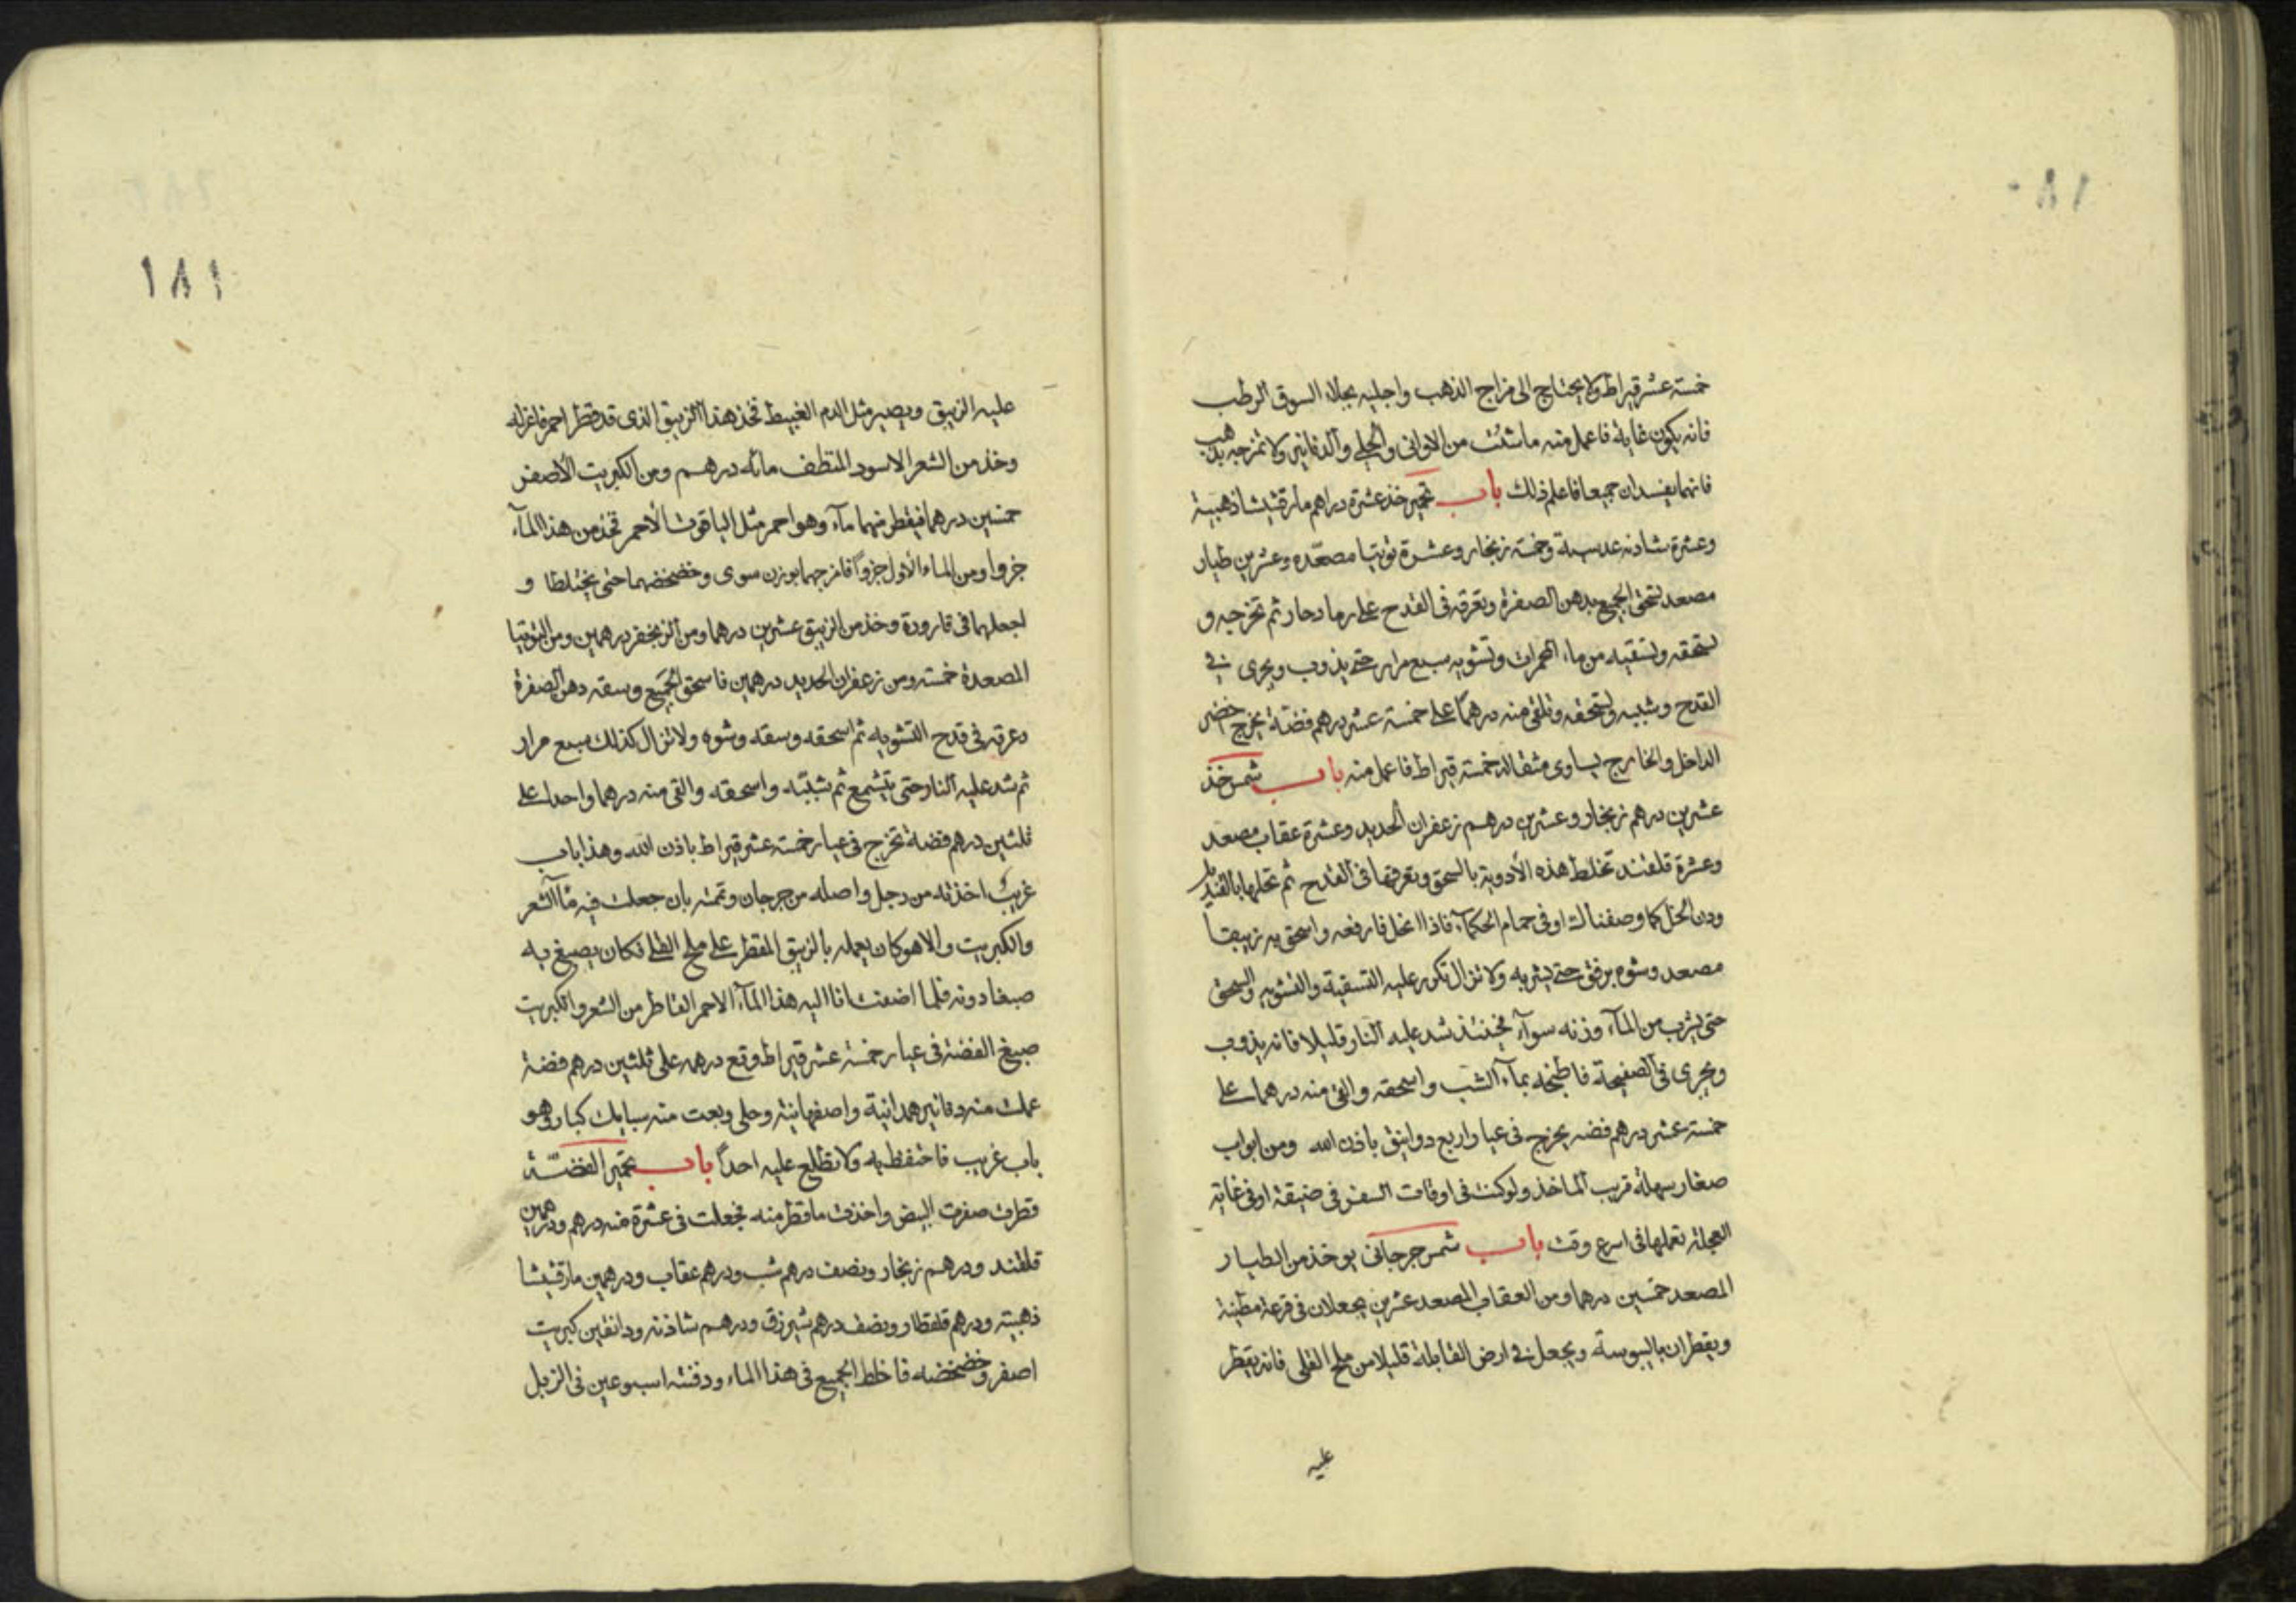 ١٨٠
خمسة عشر قيراط ولا يحتاج الى مزاج الذهب واجليه بجلاء السوق الرطب
فانه يكون غاية فاعمل منه ما شئت من الاوانى والحلى والدنانير ولا تمزجه بذهب
فانهما يفسدان جميعا فاعلم ذلك باب تحمير خذ عشرة دراهم مارقشيشا ذهبية
وعشرة شاذنه عدسية وخمسة زنجار وعشرة توتيا مصعّده وعشرين طيار
مصعد تسحق الجميع بدهن الصفرة وتعرقه فى القدح على رماد حار ثم تخرجه و
تسحقه وتسقيه من ماء الحمرات وتشويه سبع مرار حتى يذوب ويجرى فى
القدح وشببه وتسحقه وتلقى منه درهماً على خمسة عشر درهم فضة يخرج احضر
الداخل والخارج يساوى مثقاله خمسة قيراط فاعمل منه باب شمس خذ
عشرين درهم زنجار وعشرين درهم زعفران الحديد وعشرة عقاب مصعد
وعشرة قلقند تخلط هذه الأدوية بالسحق وتعرقها فى القدح ثم تحلها بالقنديل
ودن الخل كما وصفنا لك او فى حمام الحكمآء فاذا انحل فارفعه واسحق به زيبقاً
مصعد وشوه برفق حتى يشربه ولا تزال تكرر عليه التسقية والتشويه والسحق
حتى يشرب من المآء وزنه سوآء فحينئذ شد عليه النار قليلا فانه يذوب
ويجرى فى الصفيحة فاطبخه بمآء الشب واسحقه والق منه درهما على
خمسة عشر درهم فضه يخرج فى عيار اربع دوانيق باذن الله ومن ابواب
صغار سهلة قريب الماخذ ولو كنت فى اوقات السفر فى ضيقة او فى غاية
العجلة تعملها فى اسرع وقت باب شمس جرجانى يوخذ من الطيار
المصعد خمسين درهما ومن العقاب المصعد عشرين يجعلان فى قرعة مطينة
ويقطران باليبوسة ويجعل فى ارض القابلة قليلا من ملح القلى فانه يقطر
عليه
١٨١
عليه الزيبق ويصير مثل الدم الغبيط فخذ هذا الزيبق الذى قد قطر احمر فاعزله
وخذ من الشعر الاسود المنظف مائه درهم ومن الكبريت الأصفر
خمسين درهما فيقطر منهما مآء وهو احمر مثل الياقوت الأحمر فخذ من هذا المآء
جزوا ومن الماء الأول جزوًا فامزجهما بوزن سوى وخضخضهما حتى يختلطا و
اجعلهما فى قارورة وخذ من الزيبق عشرين درهما ومن الزنجفر درهمين ومن التوتيا
المصعدة خمسة ومن زعفران الحديد درهمين فاسحق الجميع وسقه دهن الصفرة
وعرقه فى قدح التشويه ثم اسحقه وسقه وشوه ولا تزال كذلك سبع مرار
ثم شد عليه النار حتى يتشمع ثم شببه واسحقه والقى منه درهما واحدا على
ثلثين درهم فضة تخرج فى عيار خمسة عشر قيراط باذن الله وهذا باب
غريب اخذته من رجل واصله من جرجان وتمته بان جعلت فيه مآ الشعر
والكبريت والا هو كان يعمله بالزيبق المقطر على ملح القلى فكان يصبغ به
صبغا دونه فلما اضفت انا اليه هذا المآء الاحمر القاطر من الشعر والكبريت
صبغ الفضة فى عيار خمسة عشر قيراط وقع درهم على ثلثين درهم فضة
عملت منه دنانير همدانية واصفهانية وحلى وبعت منه سبايك كبار وهو
باب غريب فاحتفظ به ولا تطلع عليه احداً باب تحمير الفضّة
قطرت صفرت البيض واخذت ما قطر منه فجعلت فى عشرة منه درهم ودرهمين
قلقند ودرهم زنجار ونصف درهم شب ودرهم عقاب ودرهمين مارقشيشا
ذهبية ودرهم قلقطار ونصف درهم شيرزق ودرهم شاذنه ودانقين كبريت
اصفر وخضخضه فاخلط الجميع فى هذا الماء ودفنته اسبوعين فى الزبل